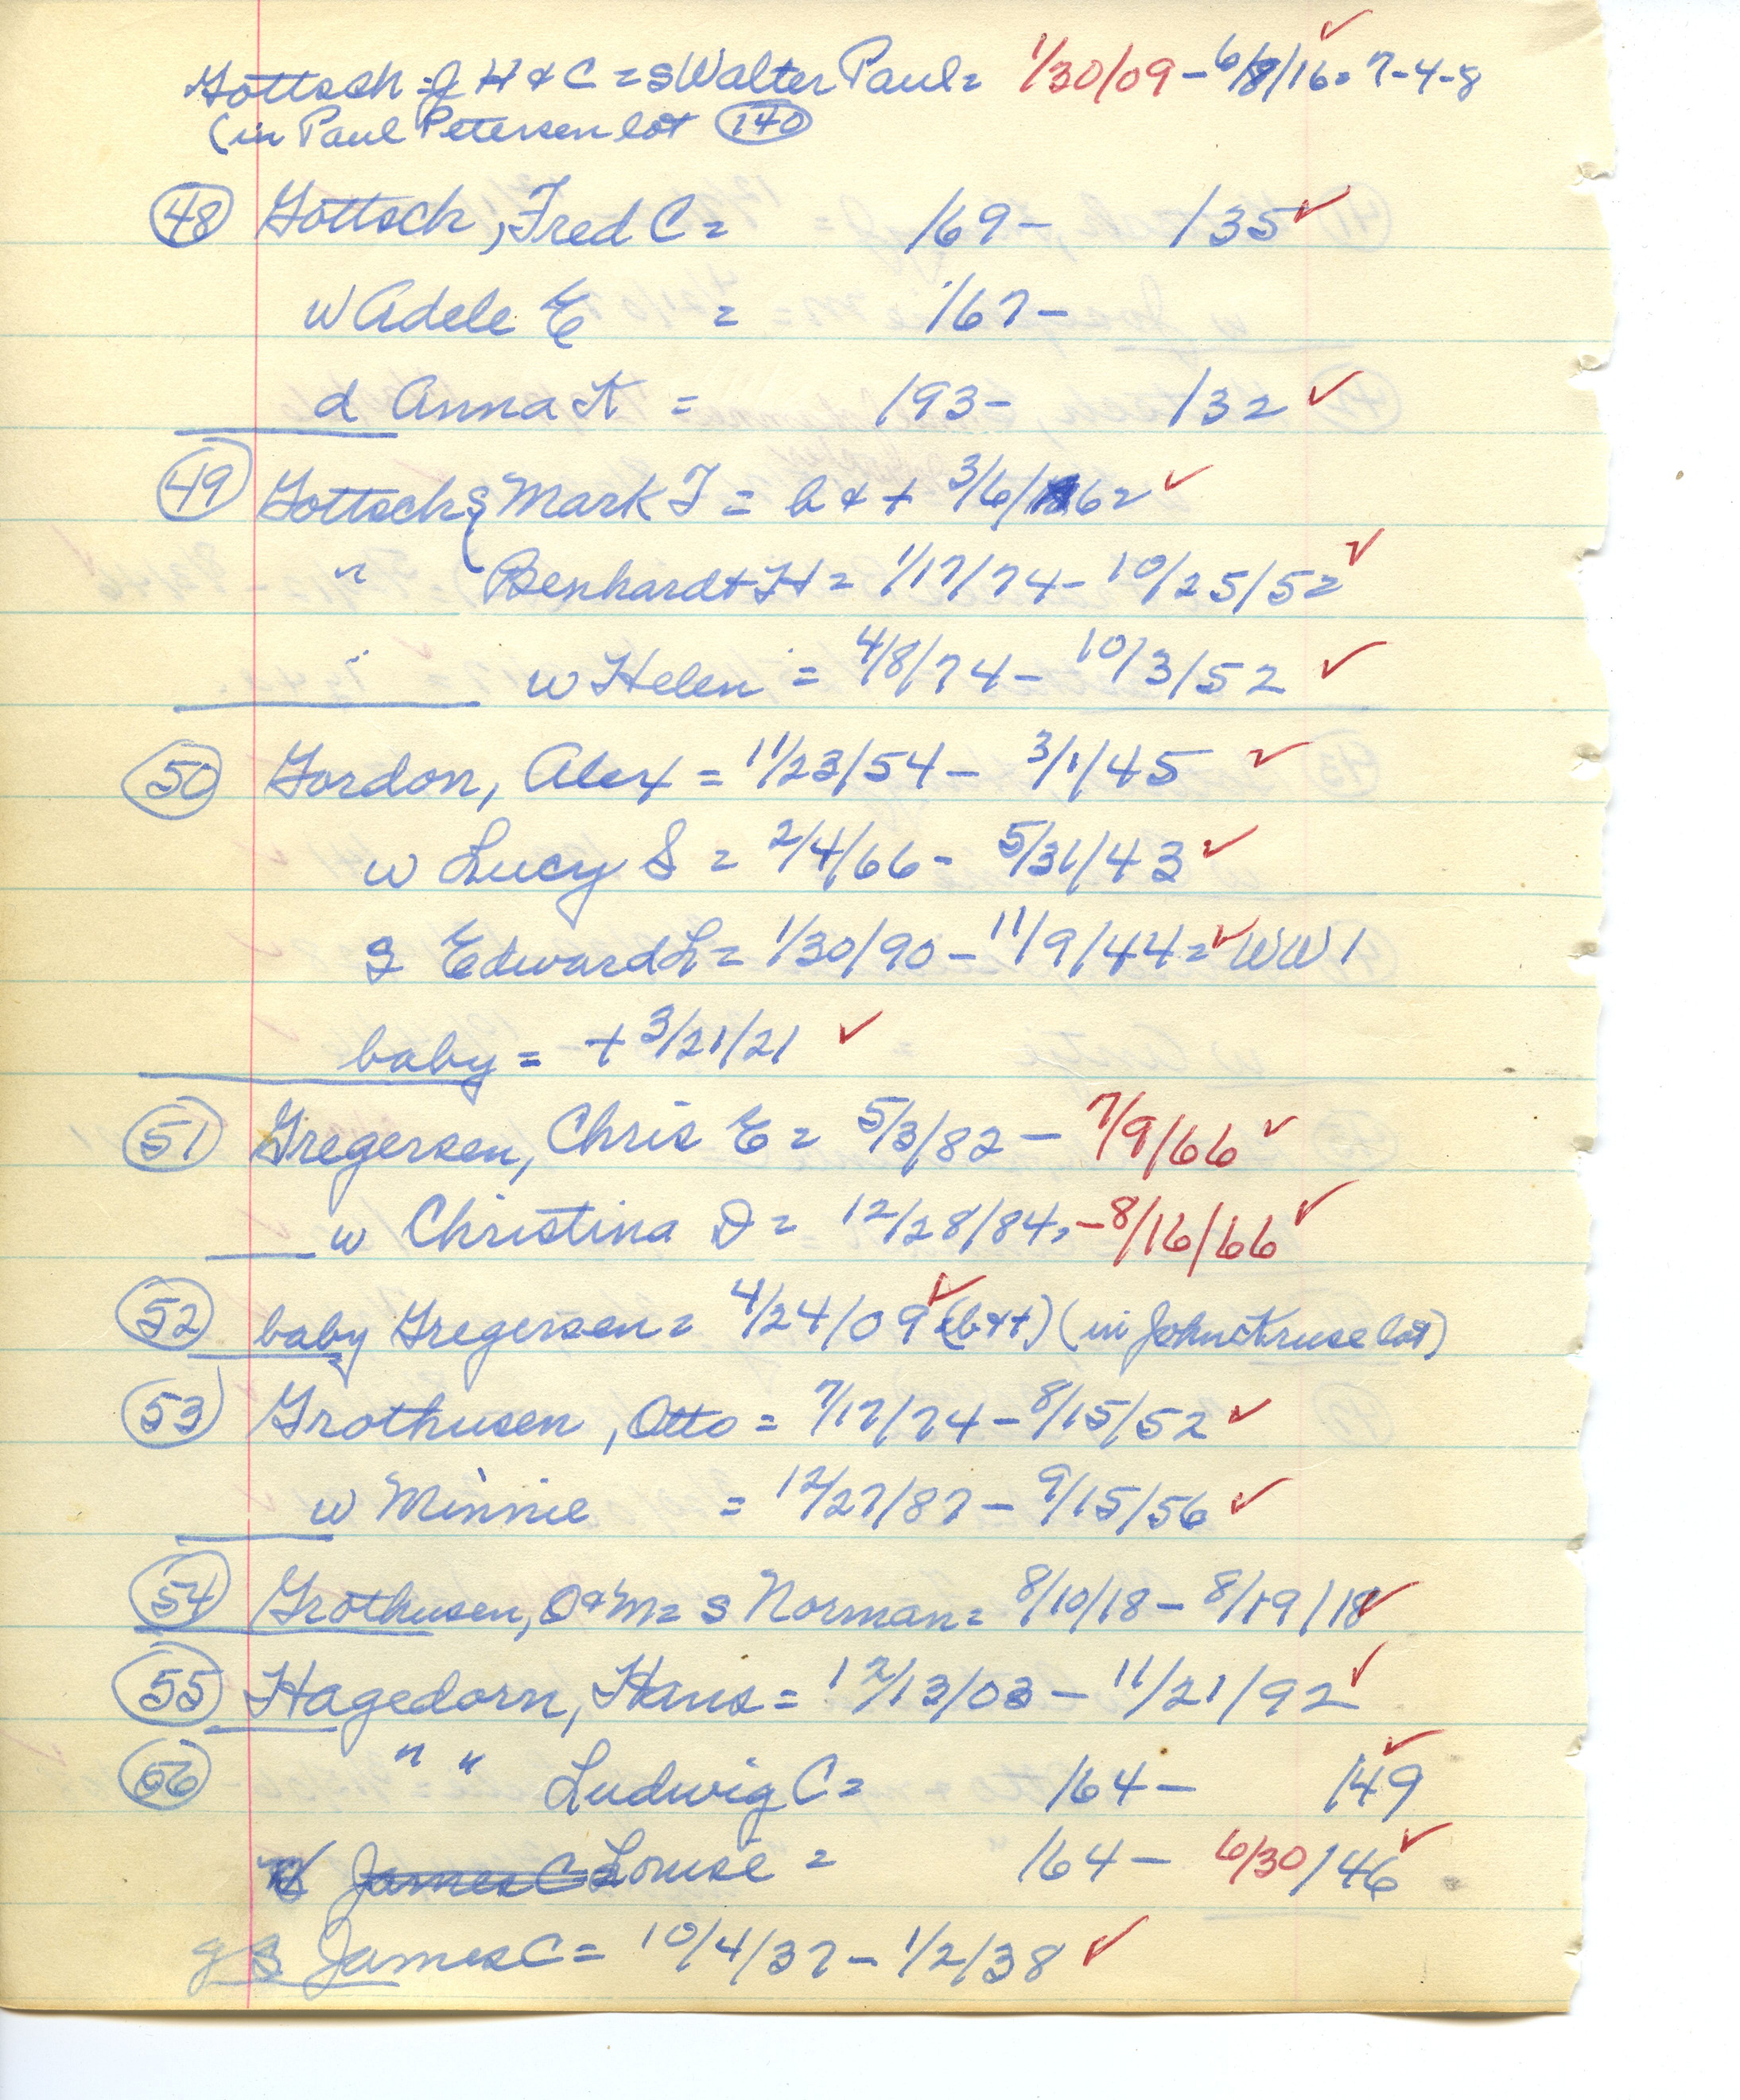 Gottsch = J H & C = s Walter Paul = 1/30/09 - 6/8/16 = 7-4-8
(in Paul Petersen lot 140
48 Gottsch, Fred C = /69 - /35 ✓
w Adele E = /67 -
d Anna K = /93 - /32 ✓
49 Gottsch { Mark F = b & + 3/6/62 ✓
" Benhardt H = 1/17/74 - 10/25/52 ✓
" w Helen = 4/8/74 - 10/3/52 ✓
50 Gordon, Alex = 11/23/54 - 3/1/45 ✓
w Lucy S = 2/4/66 - 5/31/43 ✓
s Edward L = 1/30/90 - 11/9/44 = ✓ WW1
baby = + 3/21/21 ✓
51 Gregersen, Chris E = 5/3/82 - 7/9/66 ✓
w Christina D = 12/28/84, - 8/16/66 ✓
52 baby Gregersen = 4/24/09 ✓ (b&+) (in John Kruse lot)
53 Grothusen, Otto = 7/17/74 - 8/15/52 ✓
w Minnie = 12/27/87 - 9/15/56 ✓
54 Grothusen, O & M = s Norman = 8/10/18 - 8/19/18 ✓
55 Hagedorn, Hans = 12/13/03 - 11/21/92 ✓
56 " " Ludwig C = /64 - /49 ✓
w James C Louise = /64 - 6/30/46 ✓
g s James C = 10/4/37 - 1/2/38 ✓